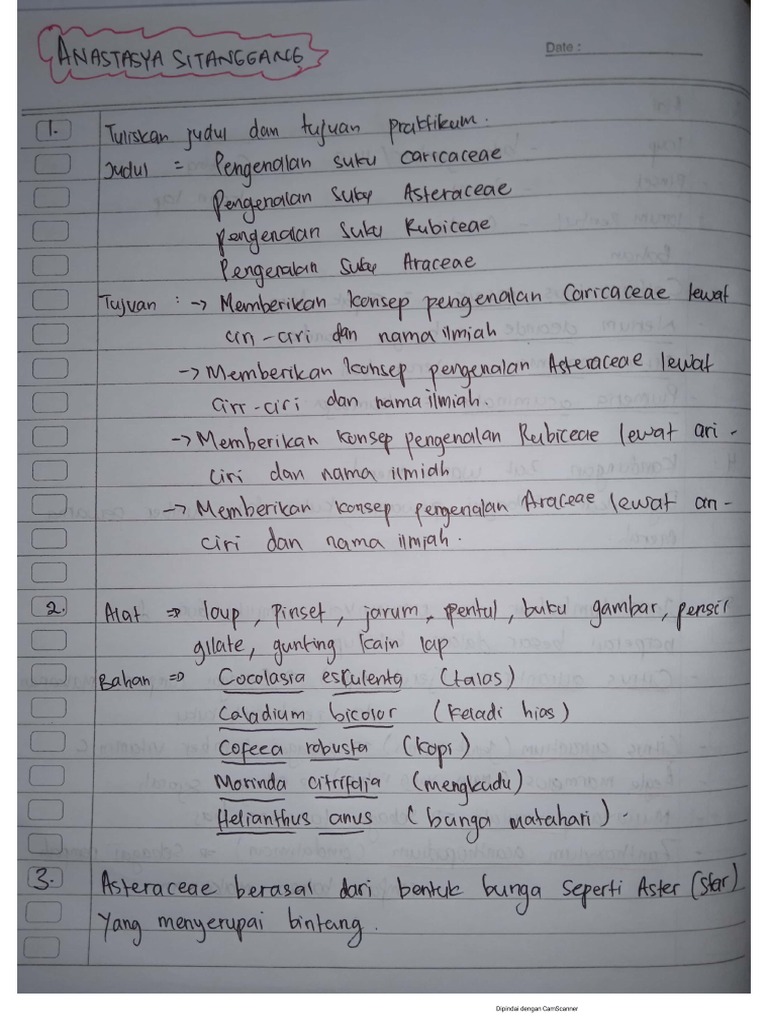 ANASTASYA SITANGGANG
Date :
1. Tuliskan judul dan tujuan praktikum.
Judul = Pengenalan suku Caricaceae
Pengenalan Suku Asteraceae
Pengenalan Suku Rubiceae
Pengenalan Suku Araceae
Tujuan : -> Memberikan konsep pengenalan Caricaceae lewat
ciri-ciri dan nama ilmiah
-> Memberikan konsep pengenalan Asteraceae lewat
ciri-ciri dan nama ilmiah.
-> Memberikan konsep pengenalan Rubiceae lewat ciri-
ciri dan nama ilmiah
-> Memberikan konsep pengenalan Araceae lewat ciri-
ciri dan nama ilmiah.
2. Alat => loup, pinset, jarum, pentul, buku gambar, pensil
gilate, gunting kain lap
Bahan => Cocolasia esculenta (talas)
Caladium bicolor (keladi hias)
Cofeea robusta (kopi)
Morinda citrifolia (mengkudu)
Helianthus anus (bunga matahari).
3. Asteraceae berasal dari bentuk bunga seperti Aster (star)
Yang menyerupai bintang.
Dipindai dengan CamScanner